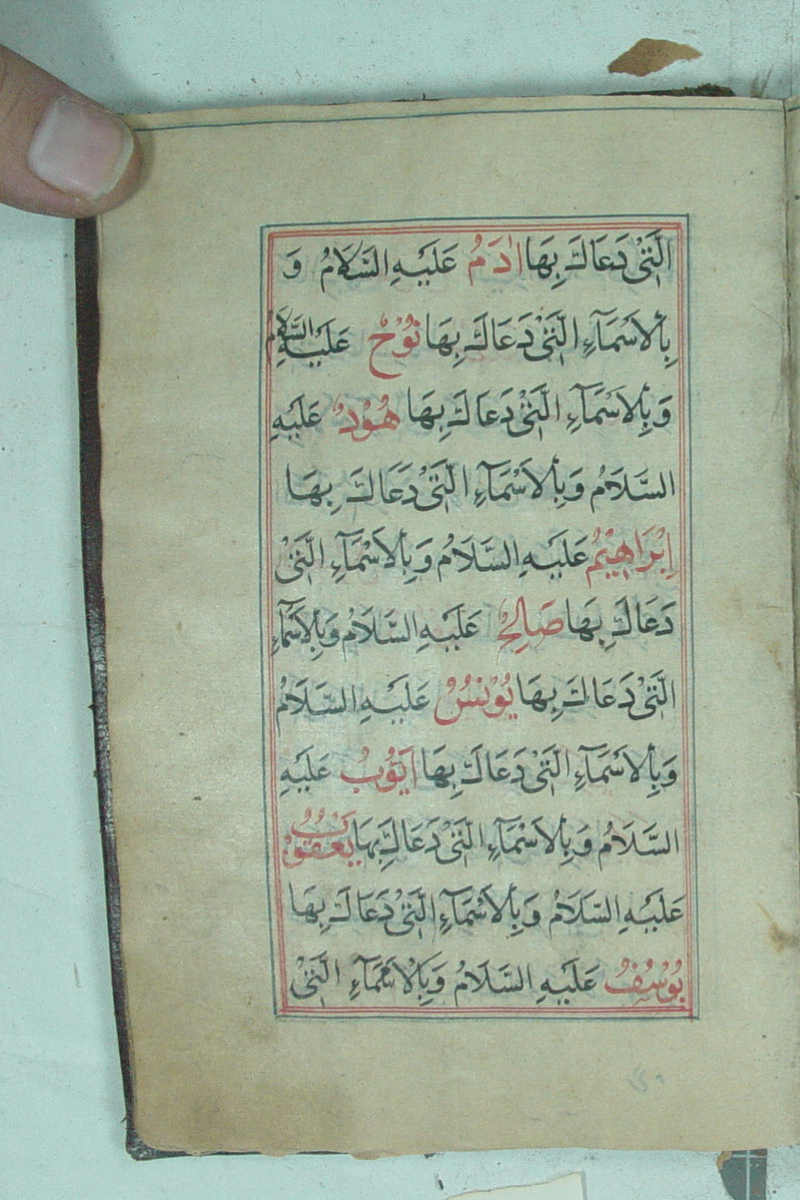 الَّتِيْ دَعَاكَ بِهَا اٰدَمُ عَلَيْهِ السَّلَامُ وَ
بِالْاَسْمَآءِ الَّتِيْ دَعَاكَ بِهَا نُوْحٌ عَلَيْهِ السَّلَامُ
وَبِالْاَسْمَآءِ الَّتِيْ دَعَاكَ بِهَا هُوْدٌ عَلَيْهِ
السَّلَامُ وَبِالْاَسْمَآءِ الَّتِيْ دَعَاكَ بِهَا
اِبْرَاهِيْمُ عَلَيْهِ السَّلَامُ وَبِالْاَسْمَآءِ الَّتِيْ
دَعَاكَ بِهَا صَالِحٌ عَلَيْهِ السَّلَامُ وَبِالْاَسْمَآءِ
الَّتِيْ دَعَاكَ بِهَا يُوْنُسُ عَلَيْهِ السَّلَامُ
وَبِالْاَسْمَآءِ الَّتِيْ دَعَاكَ بِهَا اَيُّوْبُ عَلَيْهِ
السَّلَامُ وَبِالْاَسْمَآءِ الَّتِيْ دَعَاكَ بِهَا يَعْقُوْبُ
عَلَيْهِ السَّلَامُ وَبِالْاَسْمَآءِ الَّتِيْ دَعَاكَ بِهَا
يُوْسُفُ عَلَيْهِ السَّلَامُ وَبِالْاَسْمَآءِ الَّتِيْ